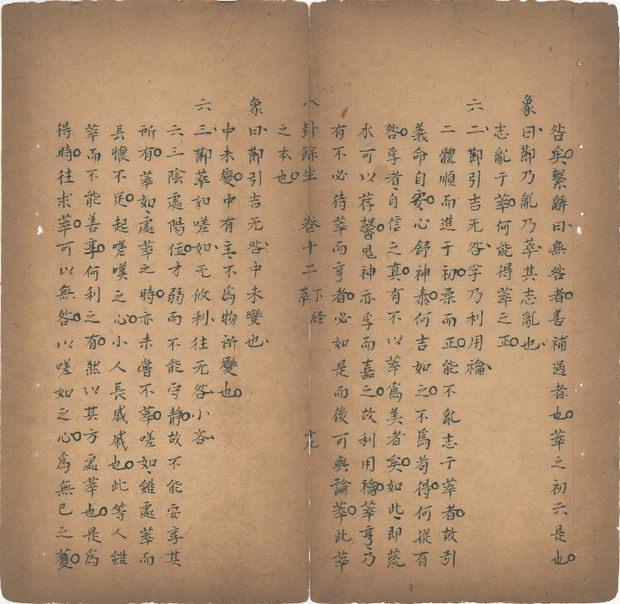 咎矣繫辭曰無咎者善補過者也萃之初六是也
象曰乃亂乃萃其志亂也
志亂于萃何能得萃之正
六二引吉无咎孚乃利用禴
二體順而進于初而正能不亂志于萃者故引
義命自安心舒神泰何吉如之不為苟得何從有
咎孚者自信之真有不以萃為美者矣如此即蔬
水可以荐馨鬼神亦孚而嘉之故利用禴萃亨乃
有不必待萃而亨者必如是而後可與論萃此萃
八卦餘生 卷十二 下経 萃 十九
之本也
象曰引吉无咎中未變也
中未變中有主不為物所變也
六三萃如嗟如无攸利往无咎小吝
六三陰處陽位才弱而不能守静故不能安享其
所有萃如處萃之時亦未嘗不萃嗟如雖處萃而
長懷不足起嗟嘆之心小人長戚戚也此等人雖
萃而不能善享何利之有然以其方處萃也是為
得時往求萃可以無咎以嗟如之心為無已之